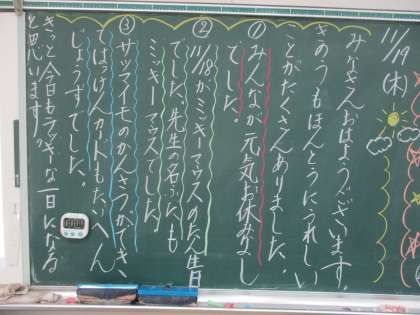 11/19(木)
みなさんおはようございます。
きのうもほんとうにうれしい
ことがたくさんありました。
①みんなが元気お休みなし
でした。
②11/18がミッキーマウスのたん生日
でした。先生の名ふだも
ミッキーマウスでした
③サツマイモのかんさつができ、
てはっけんカードもた、へん
じょうずでした。
きっと今日もラッキーな一日になる
と思います。